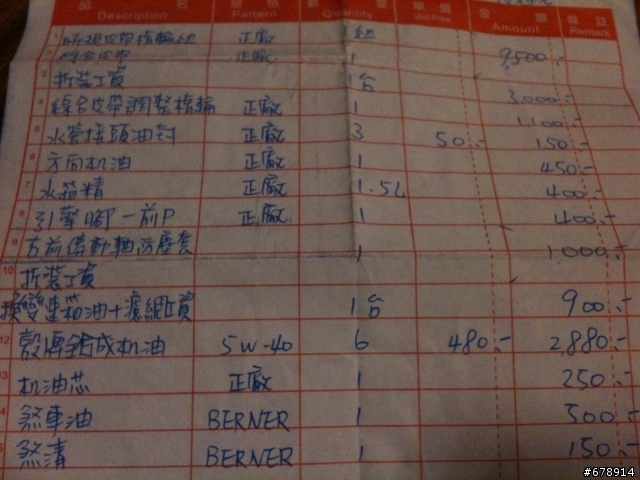 品 名 規 格 數 量 單 價 金 額 備 註
Description Pattern Quantity Unit Price Amount Remark
1 時規皮帶惰輪組 正廠 1組
2 綜合皮帶 正廠 1 9,500.-
3 折裝工資 1台
4 綜合皮帶調整惰輪 正廠 1 3,000.-
5 水管接頭油封 正廠 3 50.- 1,100.- 150.-
6 方向机油 正廠 1 450.-
7 水箱精 正廠 1.5L 400.-
8 引擎腳一前P 正廠 1 400.-
9 右前傳動軸防塵套 1 1,000.-
10 折裝工資
換變速箱油+濾網工資 1台 900.-
12 殼牌合成机油 5W-40 6 480.- 2,880.-
13 机油芯 正廠 1 250.-
4 煞車油 BERNER 1 500.-
5 煞清 BERNER 1 150.-
#678914